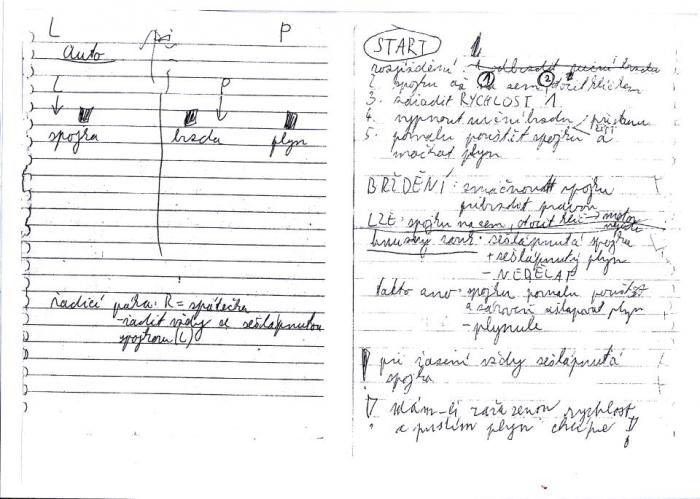 L P
auto
L P
spojka brzda plyn
řadicí páka: R = zpátečka
- řadit vždy se sešlápnutou
spojkou (L)
START 1
rozjíždění 1. odbrzdit ruční brzdu
2. spojku až na zem, otočit klíčem
1 2
3. zařadit RYCHLOST 1.
4. vypnout ruční brzdu
5. pomalu pouštět spojku a
mačkat plyn
BRŽDĚNÍ: zmáčknout spojku
přibrzdit pravou
LZE: spojku na zem, otočit klíč → motor
sešlápnutá spojka
+ sešlápnutý plyn
- NEDĚLAT
Takto ano: spojku pomalu pouštět
a zároveň sešlapovat plyn
- plynule
! při řazení vždy sešlápnutá
spojka
! Mám-li zařazenou rychlost
a pustím plyn chcípe !